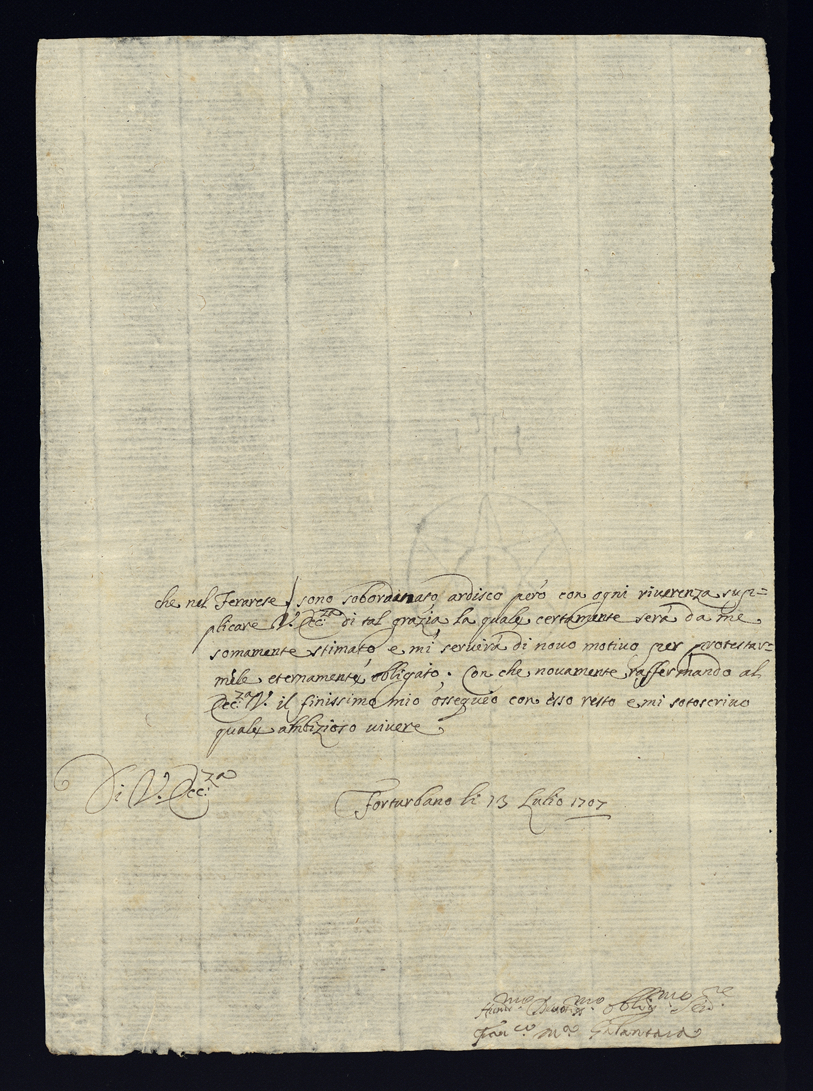 che nel Ferarese / sono sobordinato ardisco però con ogni riverenza sup=
plicare V. Ecc.za di tal grazia la quale certamente serà da me
somamente stimato e mi servirà di novo motivo per protestar=
mele eternamente obligato. Con che novamente raffermando al
Ecc.za V. il finissimo mio ossequio con esso resto e mi sotoscrivo
quale ambizioso vivere
Di V. Ecc.za
Forturbano li 13 Lulio 1707
Humil.mo Devot.mo Oblig.mo Ser.re
Fran.co M.a